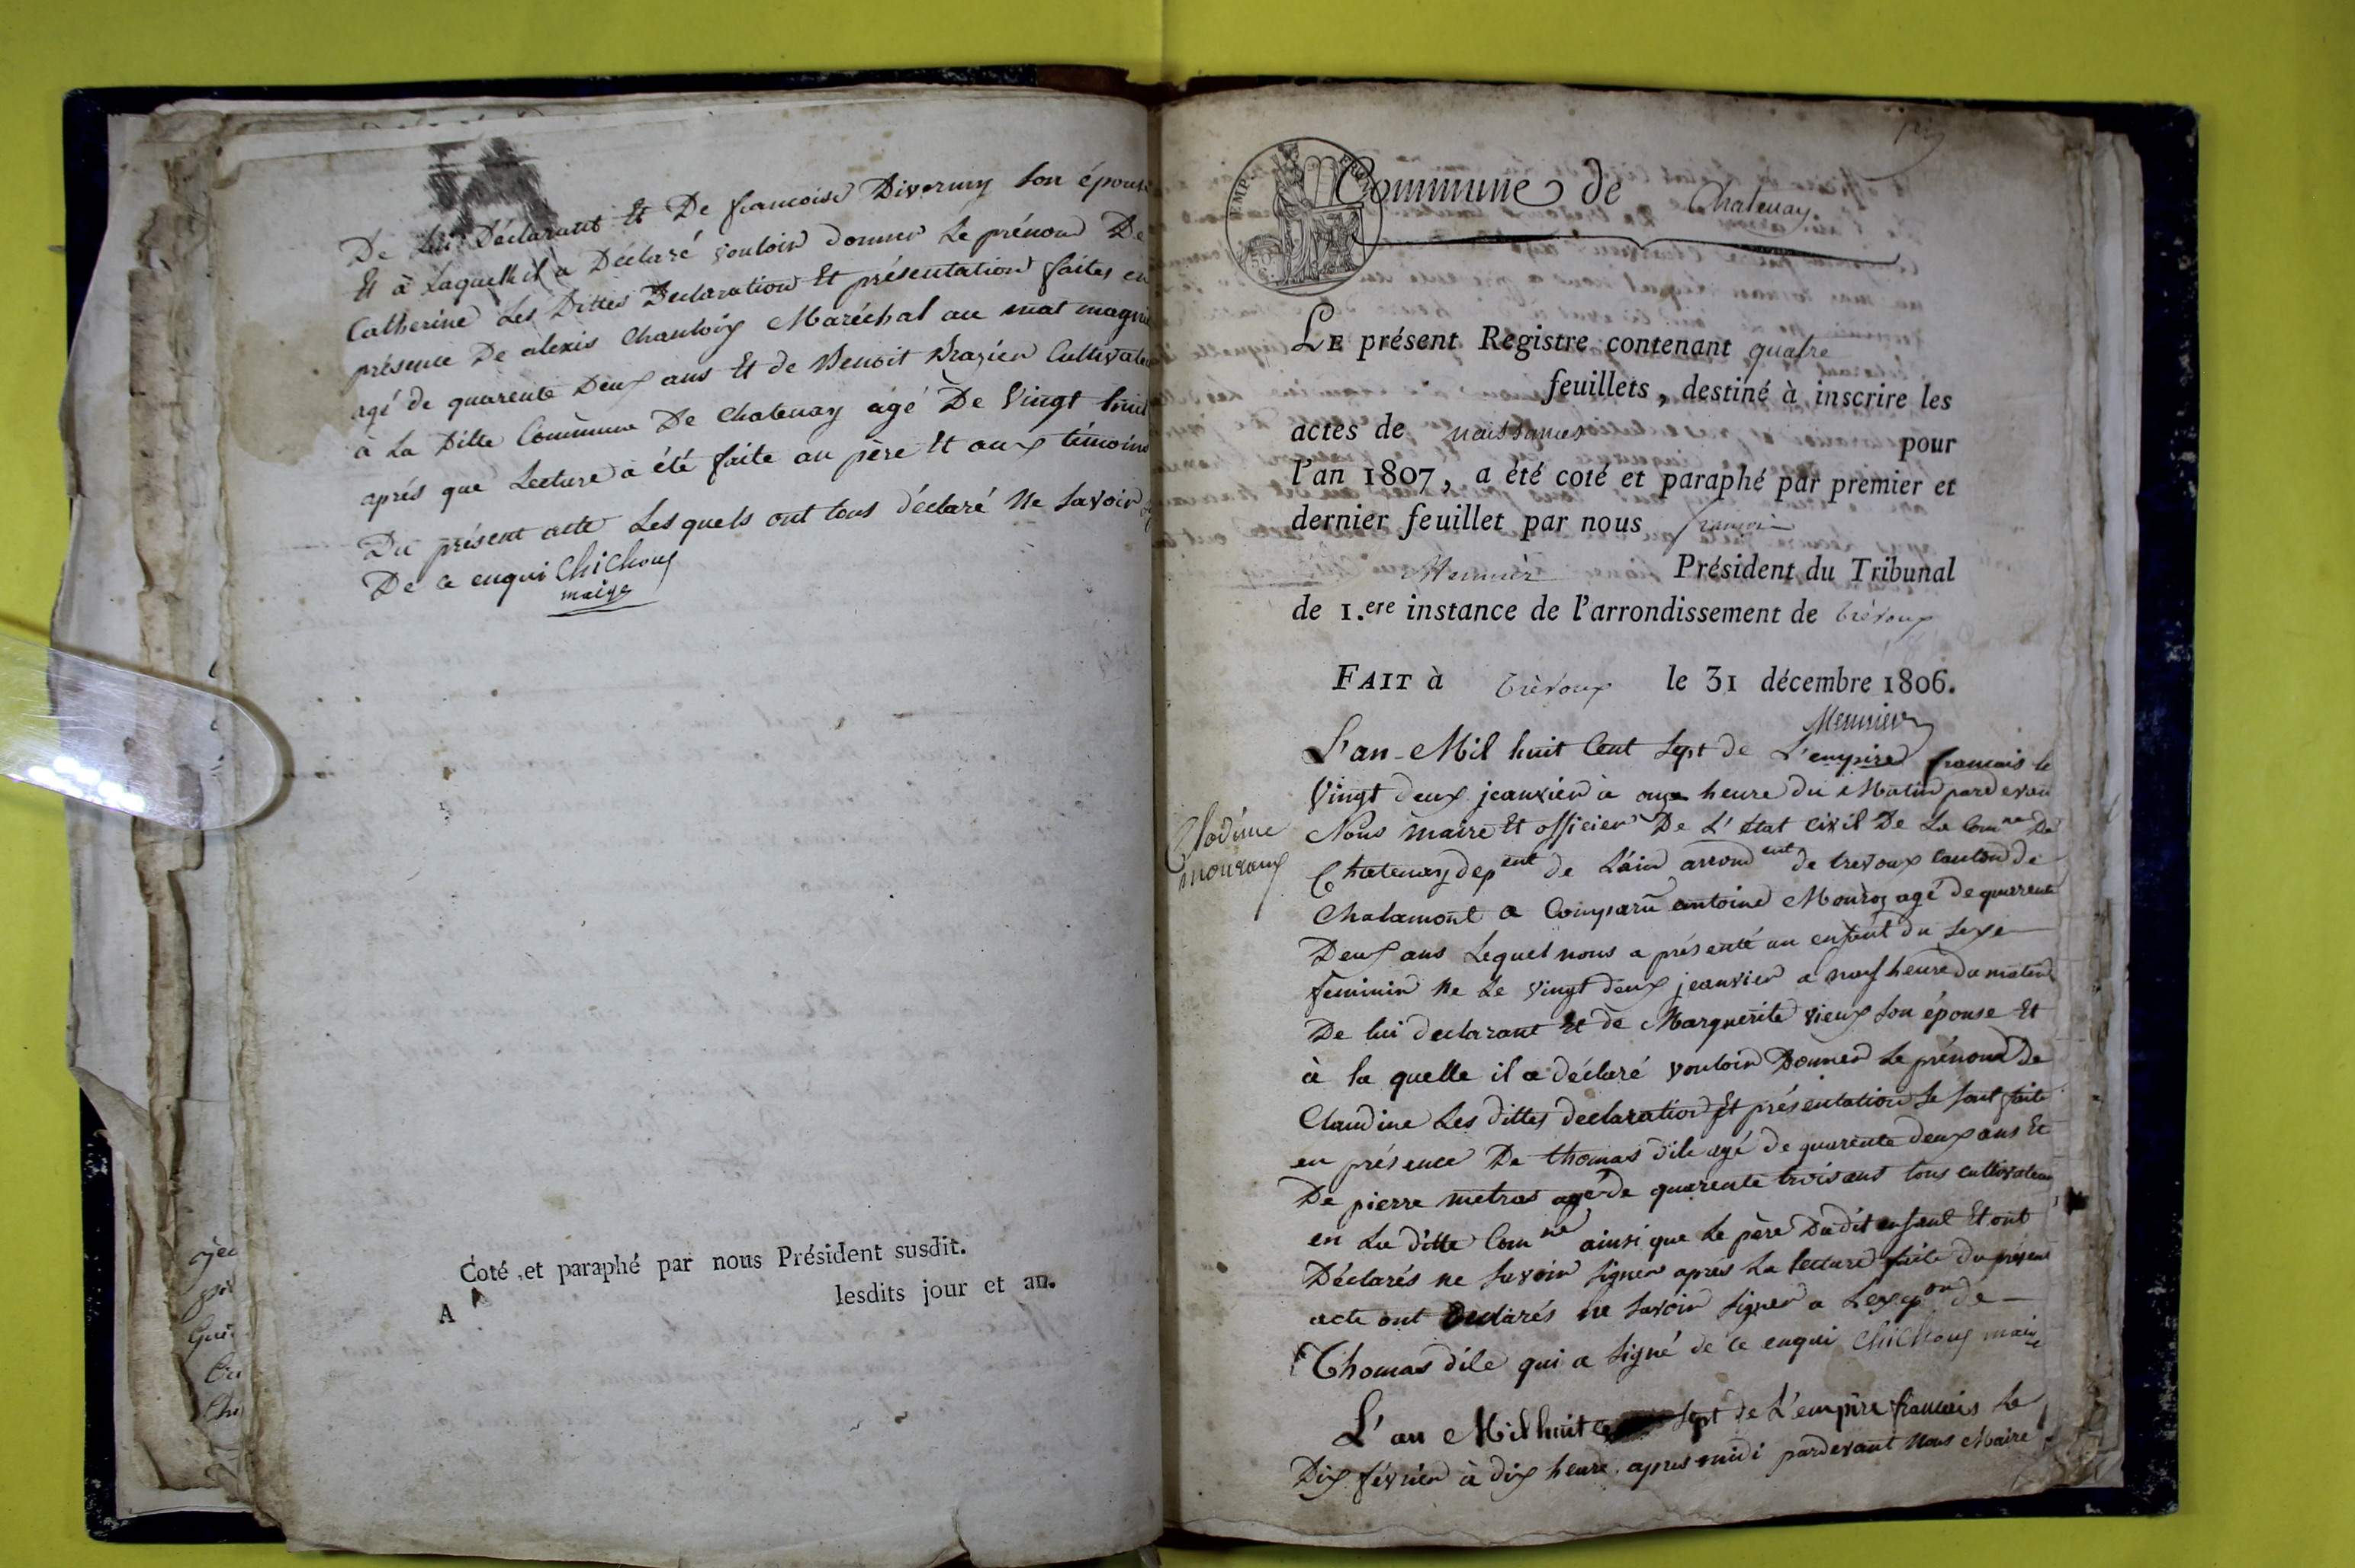 De lui Déclarant Et De francoise Divernuy son épouse
Et à Laquelle il a Déclaré vouloir donner Le prénom De
Catherine Les Dittes Declaration Et présentation faites en
présence De alexis Chanloix Maréchal au mat magnin
agé de quarente Deux ans Et de Benoit Brazier Cultivateur
à La Ditte Commune De Chatenay agé De Vingt huit
aprés que Lecture a été faite au père Et aux témoins
Du présent acte Les quels ont tous déclaré Ne Savoir
De ce enqui Chichoux
maire
Coté et paraphé par nous Président susdit.
A lesdits jour et an.
1er
EMP. FRAN.
Commune de Chatenay
LE présent Registre contenant quatre
feuillets, destiné à inscrire les
actes de naissances pour
l'an 1807, a été coté et paraphé par premier et
dernier feuillet par nous francois
Meunier Président du Tribunal
de 1.ere instance de l'arrondissement de trévoux
FAIT à trévoux le 31 décembre 1806.
Meunier
L'an Mil huit Cent Sept de L'empire francais le
Vingt deux jeanvier à onze heure du Matin pardevan
Nous maire Et officier De L'état Civil De La Comne De
Clodine
mouroux
Chatenay depent de L'ain arrondent de trevoux Canton de
Chalamont a Comparu antoine Mouroz agé de quarente
Deux ans Lequel nous a présenté un enfant du Sexe
feminin Ne Le Vingt deux jeanvier a neuf heure du matin
De lui declarant Et de Marguerite vieux Son épouse Et
à la quelle il a déclaré vouloir Donner Le prénom de
Claudine Les dittes declaration Et présentation Se Sont faite
en présence De thomas dile agé de quarente deux ans Et
De pierre metras agé de quarente trois ans tous cultivateur
en La ditte Comne ainsi que Le père Dudit enfant Et ont
Déclarés ne Savoir Signer apres La lecture faite du présent
acte ont Déclarés ne Savoir Signer a Lexcpon de
Thomas dile qui a Signé de ce enqui Chichoux maire
L'an Mil huit Sept de L'empire francais Le
Dix février à dix heure apres midi pardevant Nous Maire